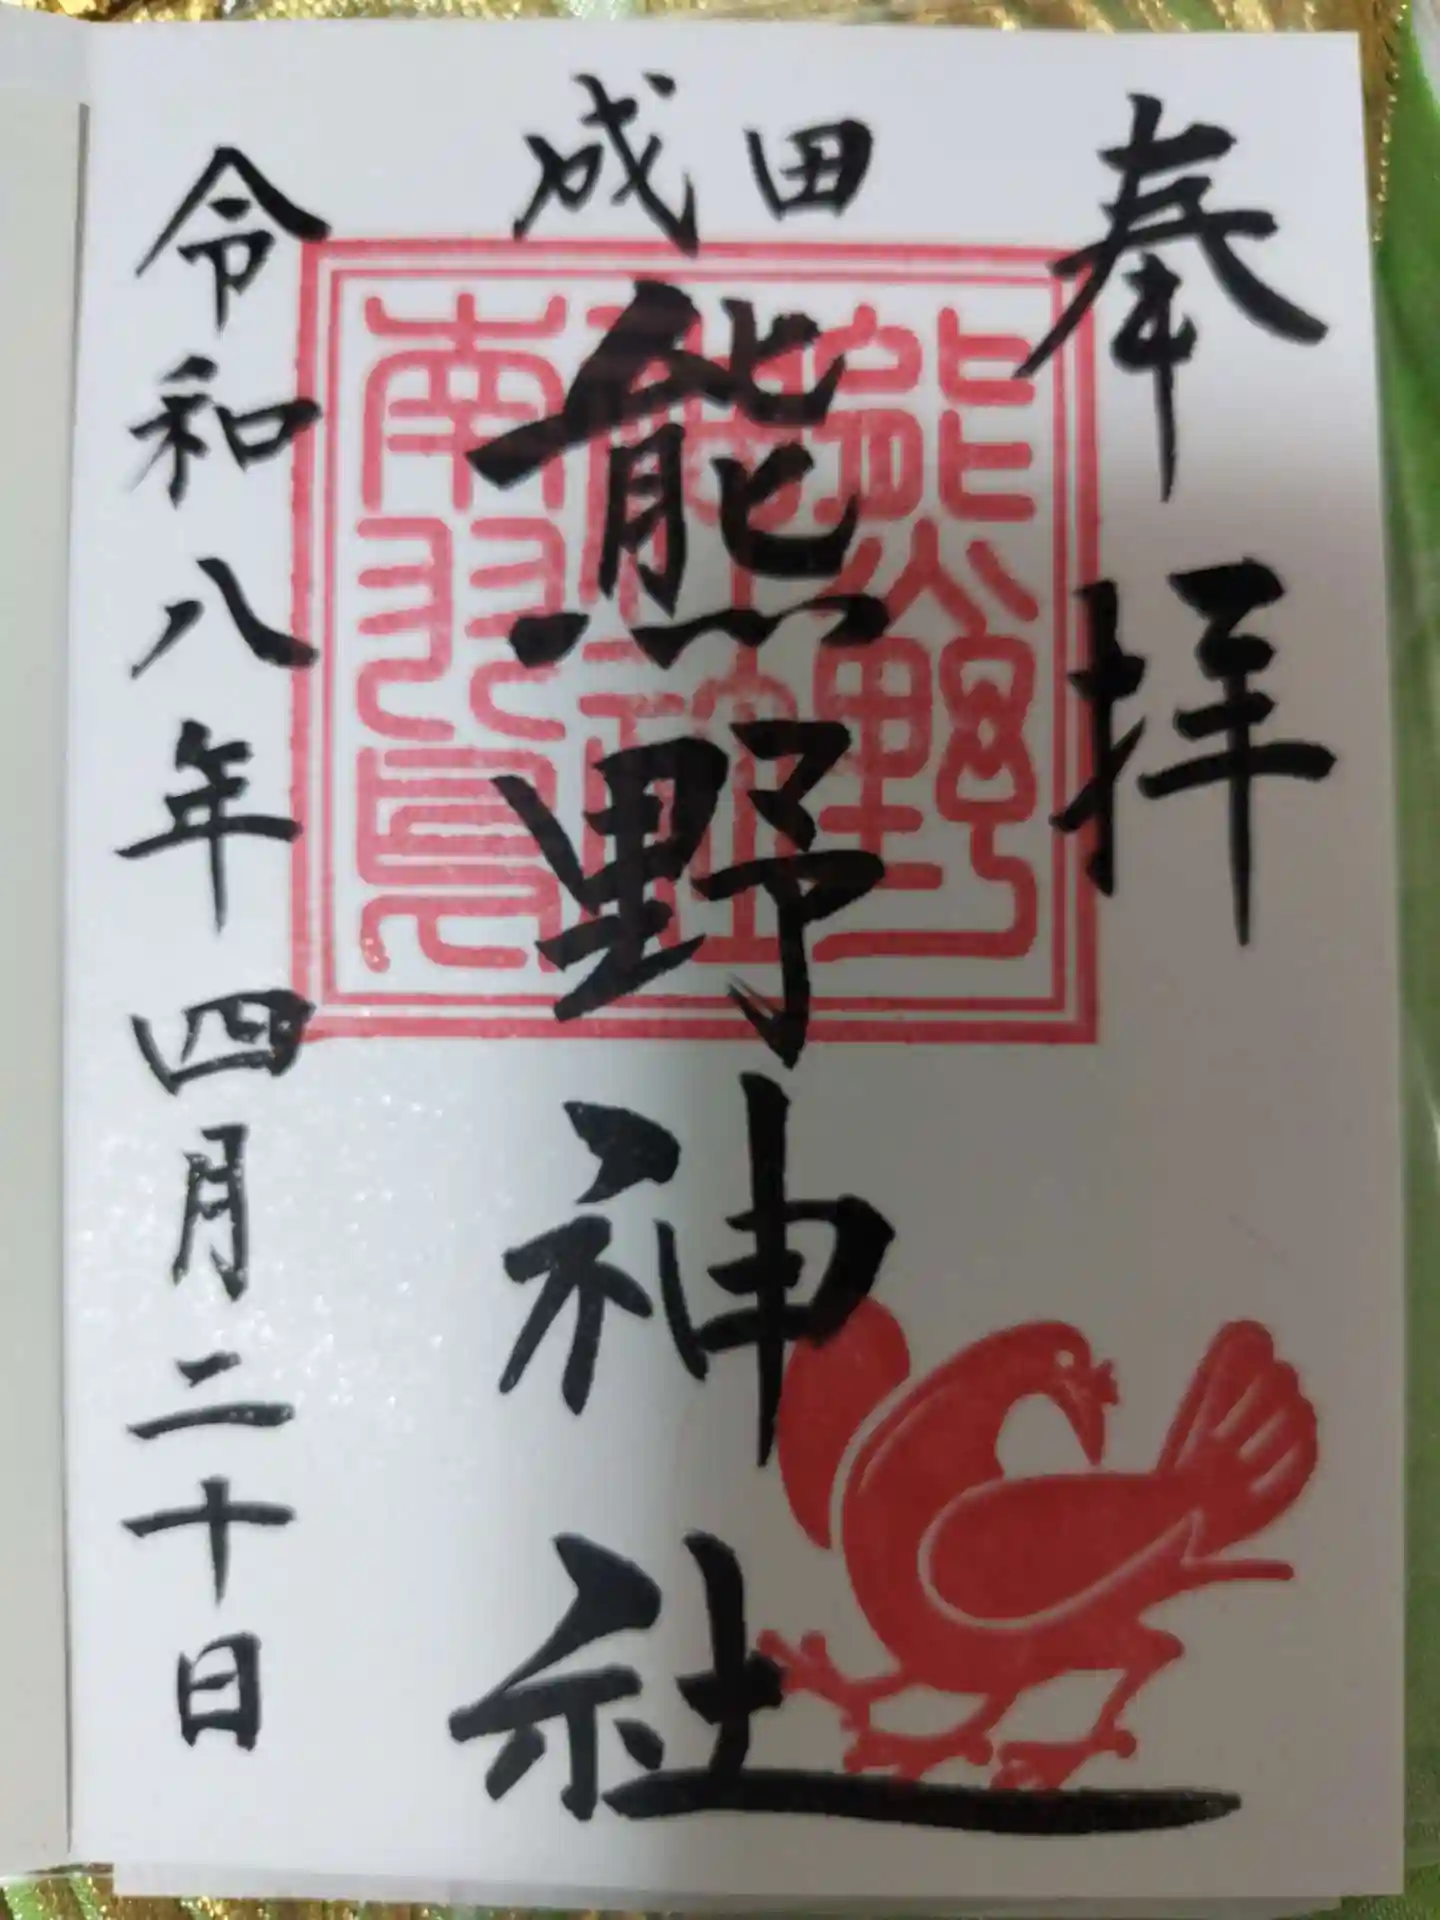 奉拝
成田
熊野神社
令和八年四月二十日
熊野
南羽鳥